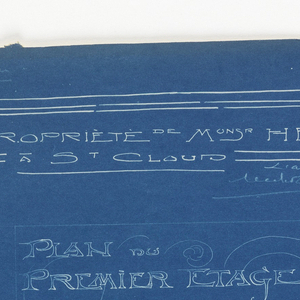 ROPRIÈTÈ DE MONSR HE
À ST CLOUD
PLAN DU
PREMIER ETAGE